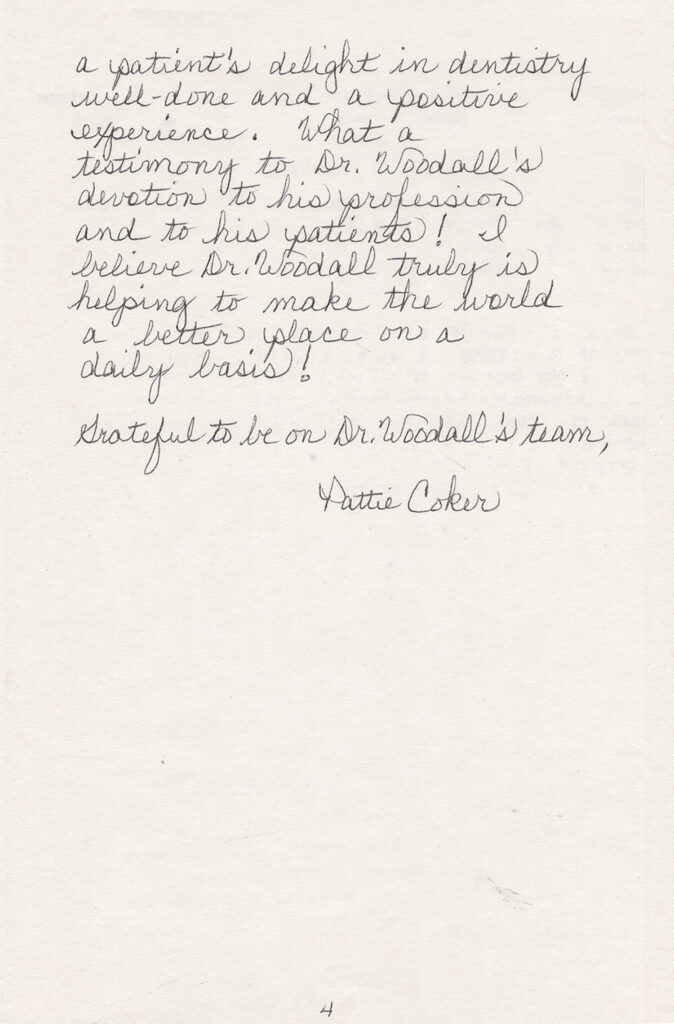 a patient's delight in dentistry
well-done and a positive
experience. What a
testimony to Dr. Woodall's
devotion to his profession
and to his patients! I
believe Dr. Woodall truly is
helping to make the world
a better place on a
daily basis!
Grateful to be on Dr. Woodall's team,
Pattie Coker
4